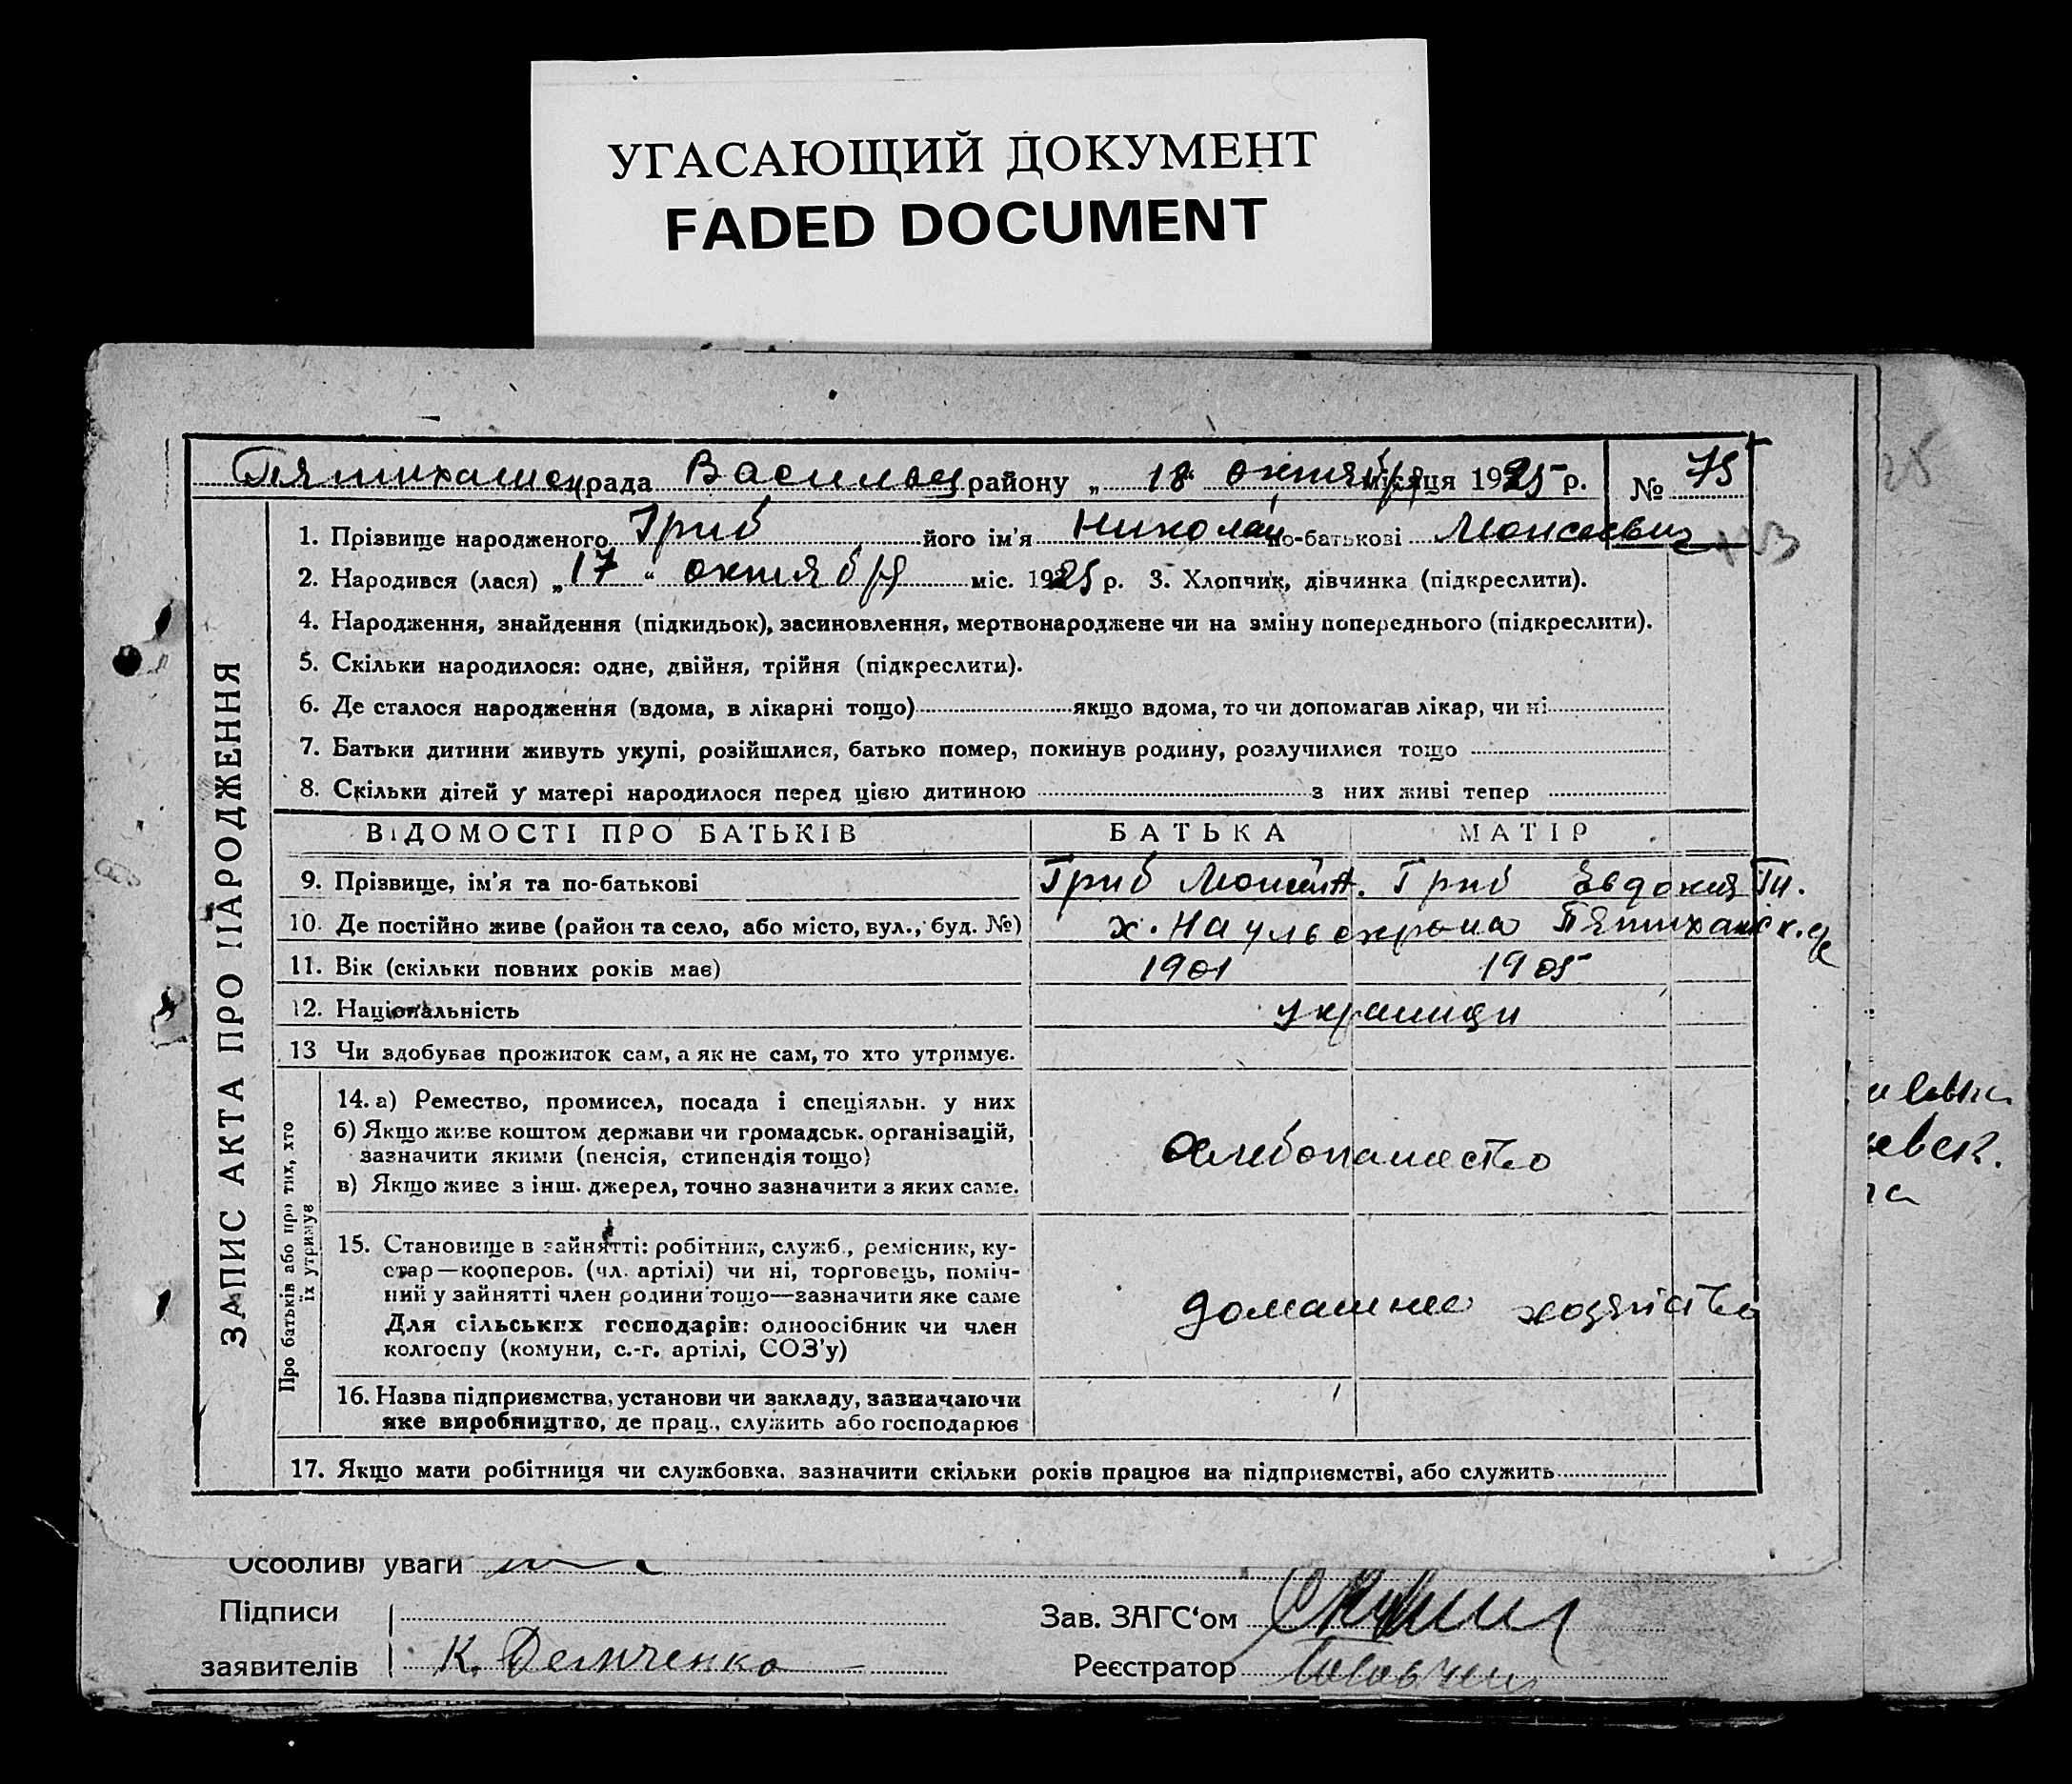 УГАСАЮЩИЙ ДОКУМЕНТ
FADED DOCUMENT
Пятихатсц рада Васильец району „ 18 октября місяця 1925 р. № 75
1. Прізвище народженого Гриб його ім'я Николай по-батькові Моисеевич
2. Народився (лася) „ 17 “ октября міс. 1925 р. 3. Хлопчик, дівчинка (підкреслити).
4. Народження, знайдення (підкидьок), засиновлення, мертвонароджене чи на зміну попереднього (підкреслити).
5. Скільки народилося: одне, двійня, трійня (підкреслити).
6. Де сталося народження (вдома, в лікарні тощо) якщо вдома, то чи допомагав лікар, чи ні
7. Батьки дитини живуть укупі, розійшлися, батько помер, покинув родину, розлучилися тощо
8. Скільки дітей у матері народилося перед цією дитиною з них живі тепер
ВІДОМОСТІ ПРО БАТЬКІВ БАТЬКА МАТІР
9. Прізвище, ім'я та по-батькові Гриб Гриб Евдокия
10. Де постійно живе (район та село, або місто, вул., буд. №) х.
11. Вік (скільки повних років має) 1901 1905
12. Національність украинци
13 Чи здобував прожиток сам, а як не сам, то хто утримує.
14. а) Ремество, промисел, посада і спеціяльн. у них
б) Якщо живе коштом держави чи громадськ. організацій,
зазначити якими (пенсія, стипендія тощо)
в) Якщо живе з інш. джерел, точно зазначити з яких саме.
хлебопашество
15. Становище в зайнятті: робітник, служб., ремісник, ку-
стар—кооперов. (чл. артілі) чи ні, торговець, поміч-
ний у зайнятті член родини тощо—зазначити яке саме
Для сільських господарів: одноосібник чи член
колгоспу (комуни, с.-г. артілі, СОЗ'у)
домашнее хозяйство
16. Назва підприємства, установи чи закладу, зазначаючи
яке виробництво, де прац., служить або господарює
17. Якщо мати робітниця чи службовка, зазначити скільки років працює на підприємстві, або служить
ЗАПИС АКТА ПРО НАРОДЖЕННЯ
Про батьків або про тих, хто
їх утримує
Особливі уваги
Підписи
Зав. ЗАГС‘ом
заявителів К. Демченко
Реєстратор